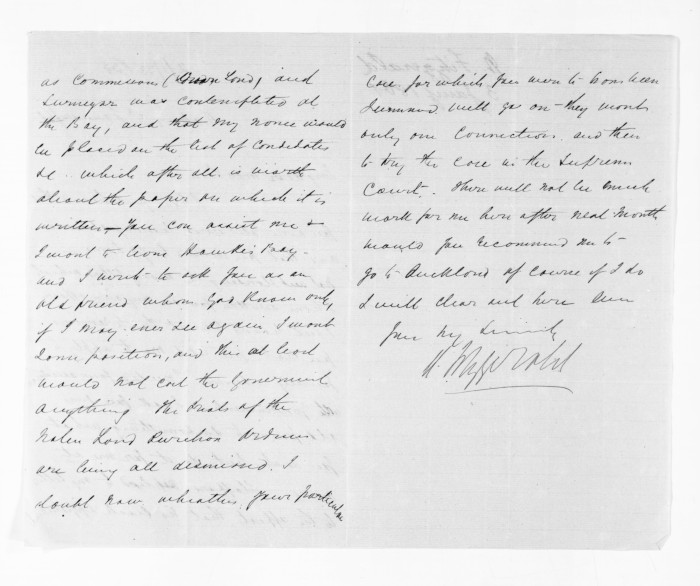 as Commission (Crown Lond) and
Surveyor was contemplated at
the Bay, and that my name would
be placed on the list of Candidates
&c. which after all is worth
about the paper on which it is
written – You can assist me &
I want to leave Hawkes Bay –
and I write to ask you as an
old friend whom God knows only
if I may ever see again, I want
some position, and this at least
would not cost the Government
anything The trials of the
Native Land Purchase
are being all dismissed. I
doubt now whether your particular
case for which you were to have been
Summoned will go on – they want
only one Connection and then
to try the case in the Supreme
Court. There will not be much
work for me here after next month
would you recommend me to
go to Auckland of course if I do
I will clear out here
your my
H. Fitzgerald